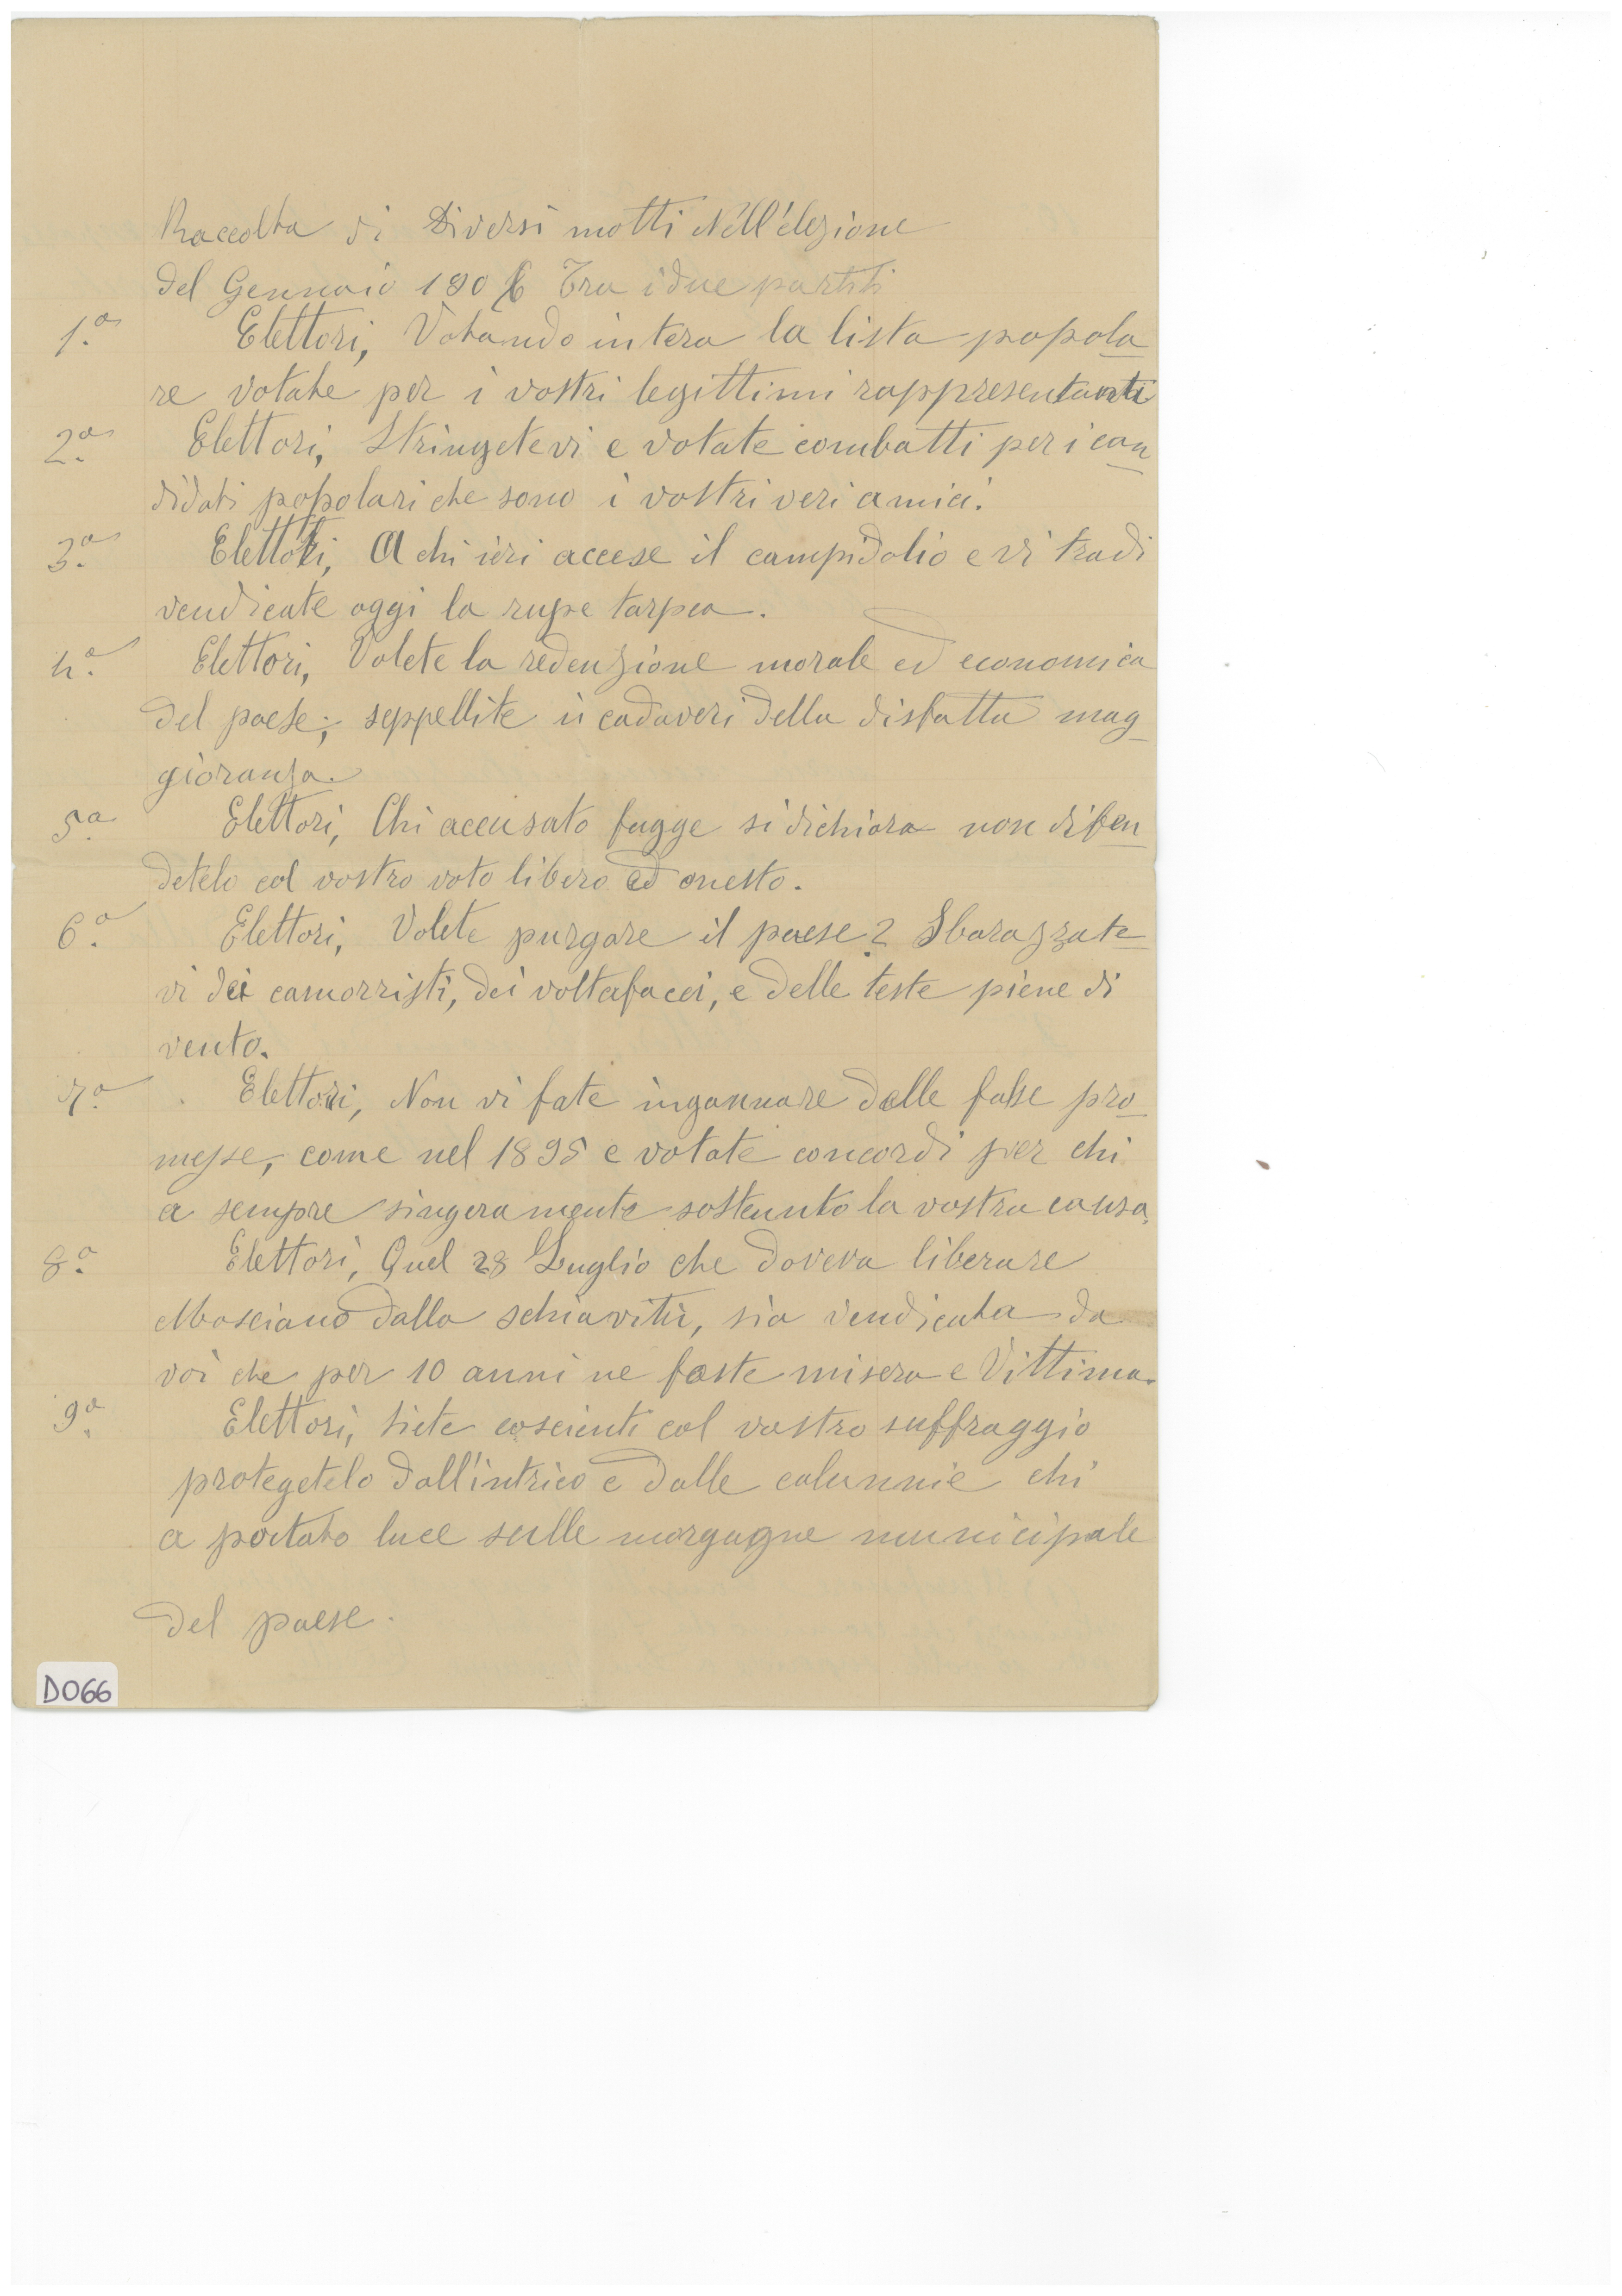 Raccolta di Diversi motti Nell'elezione
del Gennaio 1906 Tra i due partiti
1.a Elettori, Votando intera la lista popola
re votate per i vostri legittimi rappresentanti
2.a Elettori, Stringetevi e votate combatti per i can
didati popolari che sono i vostri veri amici.
3.a Elettori, A chi ieri accese il campidolio e vi tradi
vendicate oggi la rupe tarpea.
4.a Elettori, Volete la redenzione morale ed economica
del paese; seppellite i cadaveri della disfatta mag
gioranza.
5.a Elettori, Chi accusato fugge si dichiara non difen
detelo col vostro voto libero ed onesto.
6.a Elettori, Volete purgare il paese? Sbarazzate
vi dei camorristi, dei voltafacci, e delle teste piene di
vento.
7.a Elettori, Non vi fate ingannare dalle false pro
messe, come nel 1895 e votate concordi per chi
a sempre singeramente sostenuto la vostra causa,
8.a Elettori, Quel 28 Luglio che doveva liberare
Mosciano dalla schiavitù, sia vendicata da
voi che per 10 anni ne foste misera e Vittima.
9.a Elettori, siete coscienti col vostro suffraggio
protegetelo dall'intrico e dalle calunnie chi
a portato luce sulle margagne municipale
del paese.
D066